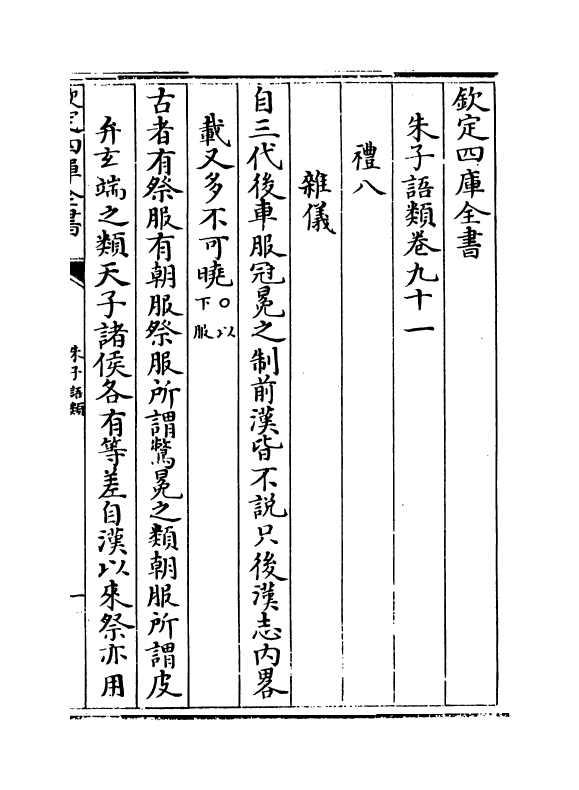 欽定四庫全書
朱子語類卷九十一
禮八
雜儀
自三代後車服冠冕之制前漢皆不說只後漢志内畧
載又多不可曉○以下服
古者有祭服有朝服祭服所謂鷩冕之類朝服所謂皮
弁玄端之類天子諸侯各有等差自漢以來祭亦用
欽定四庫全書
朱子語類
一